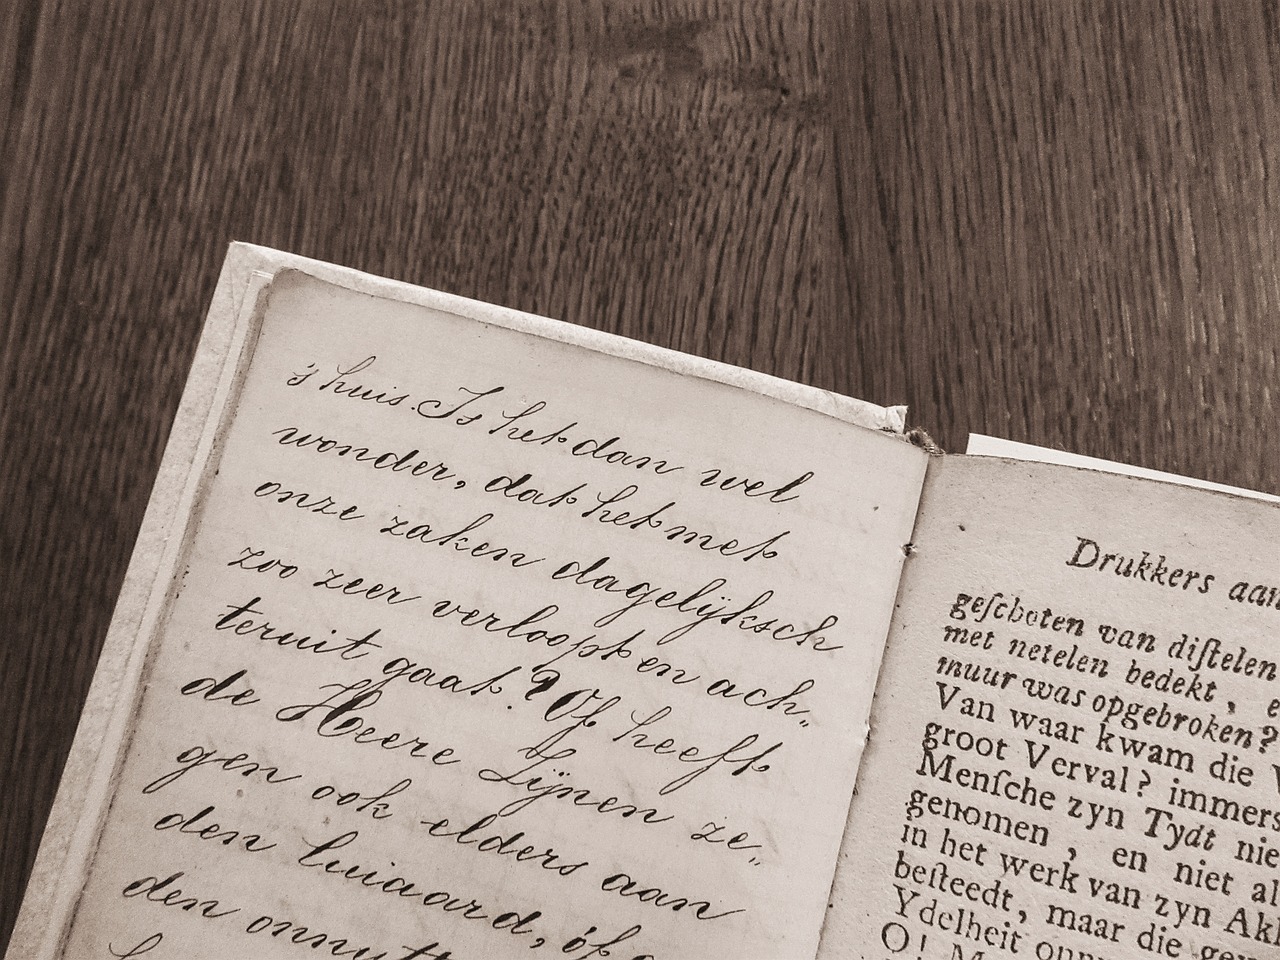 's huis. Is het dan wel
wonder, dat het met
onze zaken dagelijksch
zoo zeer verloopt en ach„
teruit gaat? Of heeft
de Heere Zijnen ze„
gen ook elders aan
den luiaard, óf a
den onnutt
Drukkers aan
geſchoten van diſtelen
met netelen bedekt, e
muur was opgebroken?
Van waar kwam die V
groot Verval? immers
Menſche zyn Tydt nie
genomen, en niet al
in het werk van zyn Akk
beſteedt, maar die gew
Ydelheit onnu
O! M